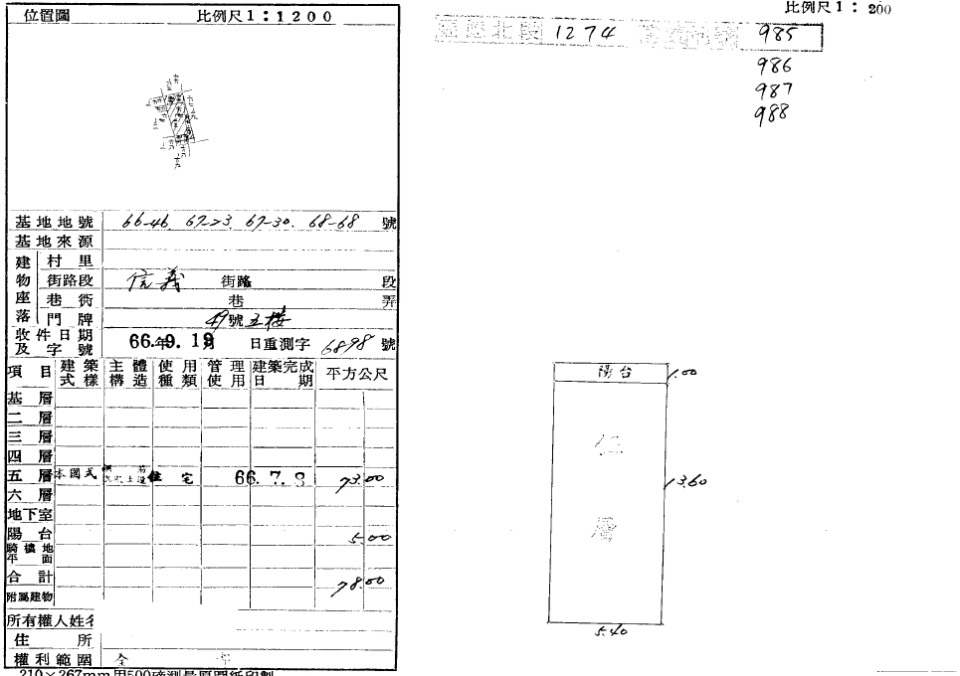 位置圖 比例尺1:1200
基地地號 66-46. 67-23. 67-30. 68-68 號
基地來源
建物座落 村里
街路段 信義 街路 段
巷衖 巷 弄
門牌 49號五樓
收件日期及字號 66年9.19月 日重測字 6898 號
項目 建築式樣 主體構造 使用種類 管理使用 建築完成日期 平方公尺
基層
二層
三層
四層
五層 本國式 住宅 66.7.8 73.00
六層
地下室
陽台 5.00
騎樓地平面
合計 78.00
附屬建物
所有權人姓名
住所
權利範圍 全部
210×267mm用500磅測量原圖紙印製
比例尺1:200
北段 1274 985
986
987
988
陽台 1.00
13.60
層
5.40